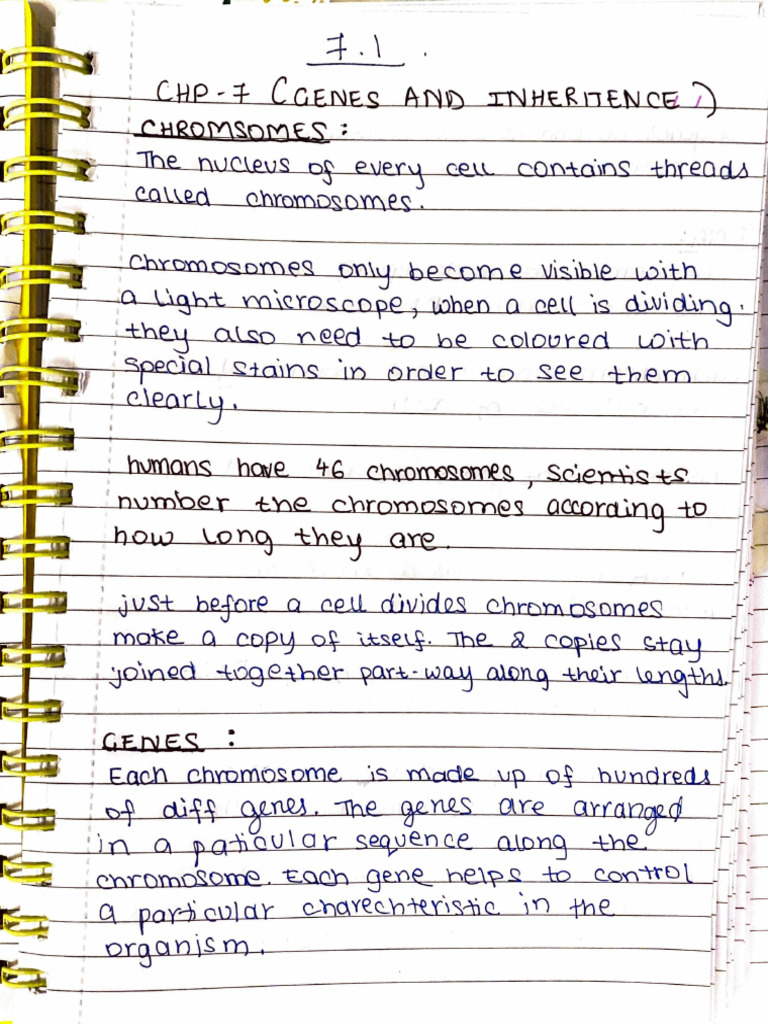 7.1.
CHP-7 (GENES AND INHERITENCE)
CHROMSOMES:
The nucleus of every cell contains threads
called chromosomes.
chromosomes only become visible with
a light microscope, when a cell is dividing.
they also need to be coloured with
special stains in order to see them
clearly.
humans have 46 chromosomes, scientists
number the chromosomes according to
how long they are.
just before a cell divides chromosomes
make a copy of itself. The 2 copies stay
joined together part-way along their lengths.
GENES:
Each chromosome is made up of hundreds
of diff genes. The genes are arranged
in a paticular sequence along the
chromosome. Each gene helps to control
a particular charechteristic in the
organism.